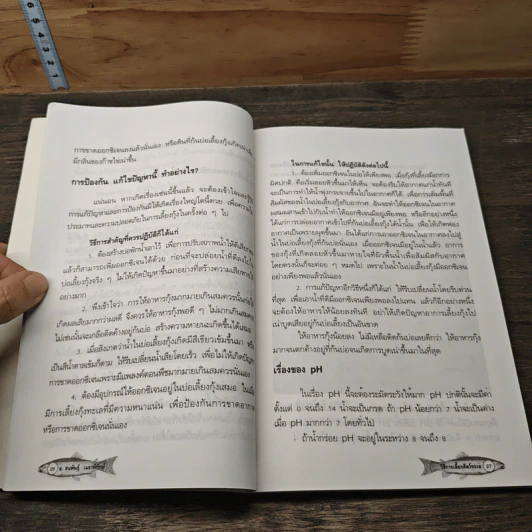 การขาดออกซิเจนลงแล้วนั่นเอง หรือดินที่ก้นบ่อเลี้ยงกุ้งเกิดเน่าเสีย
มีกลิ่นของก๊าซไข่เน่าขึ้น
การป้องกัน แก้ไขปัญหานี้ ทำอย่างไร?
แน่นอน หากเกิดเรื่องเช่นนี้ขึ้นแล้ว จะต้องเข้าใจและรู้
การแก้ปัญหาและการป้องกันมิให้เกิดเรื่องใหญ่โตนี้ด้วย เพื่อความไม่
ประมาทและความปลอดภัยในการเลี้ยงกุ้งในครั้งต่อ ๆ ไป
วิธีการสำคัญที่ควรปฏิบัติก็ได้แก่
1. ต้องสร้างบ่อพักน้ำเอาไว้ เพื่อการปรับสภาพน้ำให้ดีเสียก่อน
แล้วก็สามารถเพิ่มออกซิเจนได้ด้วย ก่อนที่จะปล่อยน้ำที่ดีลงไป
เลี้ยงกุ้งจริง ๆ ไม่ให้เกิดปัญหาขึ้นมาอย่างที่สร้างความเสียหาย
อย่างมาก
2. พึงเข้าใจว่า การให้อาหารกุ้งมากมายเกินสมควรนั้นก่อให้
เกิดผลเสียมากกว่าผลดี จึงควรให้อาหารกุ้งพอดี ๆ ไม่มากเกินสมควร
ไม่เช่นนั้นจะเหลือติดค้างอยู่ก้นบ่อ สร้างความหายนะเกิดขึ้นได้เสมอ
3. เมื่อสังเกตว่าน้ำในบ่อเลี้ยงกุ้งเกิดมีสีเขียวเข้มขึ้นมา หรือ
เป็นสีน้ำตาลเข้มก็ตาม ให้รีบเปลี่ยนน้ำเสียโดยเร็ว เพื่อไม่ให้เกิดปัญหา
การขาดออกซิเจนเพราะมีแพลงค์ตอนพืชมากมายเกินสมควรนั่นเอง
4. ต้องมีอุปกรณ์ให้ออกซิเจนอยู่ในบ่อเลี้ยงกุ้งเสมอ ในเมื่อ
มีการเลี้ยงกุ้งทะเลที่มีความหนาแน่น เพื่อป้องกันการขาดอากาศ
หรือการขาดออกซิเจนนั่นเอง
ธนพันธุ์ เมธาพิทักษ์
ในการแก้ไขนั้น ให้ปฏิบัติดังต่อไปนี้
1. ต้องเพิ่มออกซิเจนในบ่อให้เพียงพอ เมื่อกุ้งที่เลี้ยงมีอาการ
ผิดปกติ คือเริ่มลอยหัวขึ้นมาให้เห็น จะต้องรีบให้อากาศแก่น้ำทันที
จะเป็นการทำให้น้ำพุ่งกระจายขึ้นไปในอากาศก็ได้ เพื่อการเพิ่มพื้นที่
สัมผัสของน้ำในบ่อเลี้ยงกุ้งกับอากาศ อันจะทำให้ออกซิเจนในอากาศ
ผสมผสานเข้าไปกับน้ำทำให้ออกซิเจนมีอยู่เพียงพอ หรืออีกอย่างหนึ่ง
ก็ได้แก่การปล่อยอากาศเข้าไปที่ก้นบ่อเลี้ยงกุ้งก็ได้น้ำนั้น เพื่อให้เกิดฟอง
อากาศเป็นพรายผุดขึ้นมา อันได้แก่การเอาออกซิเจนในอากาศลงไปสู่
น้ำในบ่อเลี้ยงกุ้งที่ก้นบ่อนั่นเอง เมื่อออกซิเจนมีอยู่ในน้ำแล้ว อาการ
ของกุ้งที่เกิดลอยหัวขึ้นมาหายใจที่ผิวพื้นน้ำเพื่อสัมผัสกับอากาศ
โดยตรงนั้นก็จะค่อย ๆ หมดไป เพราะในน้ำในบ่อเลี้ยงกุ้งมีออกซิเจน
อย่างเพียงพอแล้วนั่นเอง
2. การแก้ปัญหาอีกวิธีหนึ่งก็ได้แก่ ให้รีบเปลี่ยนน้ำโดยรีบด่วน
ที่สุด เพื่อเอาน้ำที่ดีมีออกซิเจนเพียงพอลงไปแทน แล้วก็อีกอย่างหนึ่ง
จะต้องให้อาหารน้อยลงทันที อย่าให้เกิดปัญหาอาการเลี้ยงกุ้งไป
เน่าบูดเสียอยู่ก้นบ่อเป็นอันขาด
ให้อาหารกุ้งน้อยลง ไม่มีเหลือติดก้นบ่อเลยดีกว่า ให้อาหารกุ้ง
มากจนตกค้างอยู่ที่ก้นบ่อจนเกิดการบูดเน่าขึ้นมาในที่สุด
เรื่องของ pH
ในเรื่อง pH นี้จะต้องระมัดระวังให้มาก pH ปกตินั้นจะมีค่า
ตั้งแต่ 0 จนถึง 14 น้ำจะเป็นกรด ถ้า pH น้อยกว่า 7 น้ำจะเป็นด่าง
เมื่อ pH มากกว่า 7 โดยทั่วไป
ถ้าน้ำกร่อย pH จะอยู่ในระหว่าง 8 จนถึง 8
วิธีการเลี้ยงสัตว์ทะเล 27
6 5 4 3 2 1